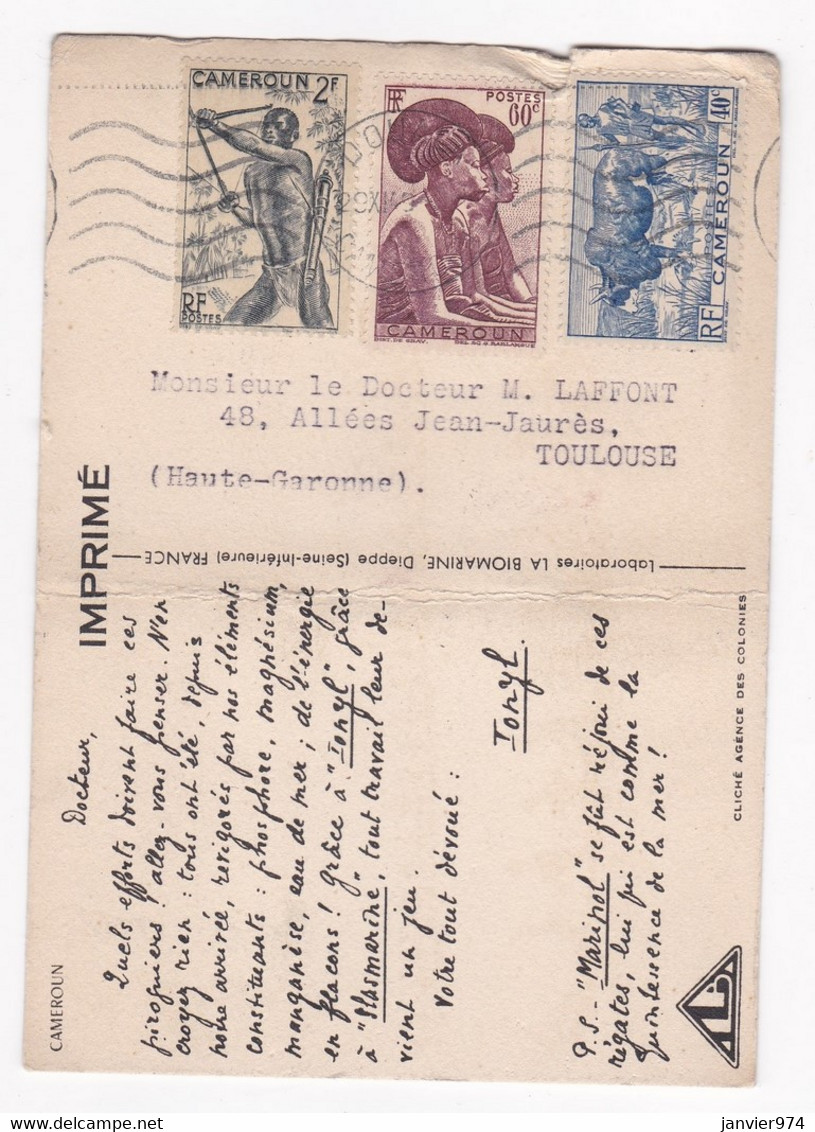 CAMEROUN 2F
RF
POSTES
RF POSTES
60c
CAMEROUN
40c
POSTES
RF CAMEROUN
Monsieur le Docteur M. LAFFONT
48, Allées Jean-Jaurès,
TOULOUSE
(Haute-Garonne).
IMPRIMÉ
Laboratoires LA BIOMARINE, Dieppe (Seine-Inférieure) FRANCE
CAMEROUN
Docteur,
Quels efforts doivent faire ces
piroguiers ! allez-vous penser. N'en
croyez rien : tous ont été, depuis
notre arrivée, revigorés par nos éléments
constituants : phosphore, magnésium,
manganèse, eau de mer ; de l'énergie
en flacons ! Grâce à "Ionyl", grâce
à "Plasmarine", tout travail leur de-
vient un jeu.
Votre tout dévoué :
Ionyl.
P.S.- "Marinol" se fût réjoui de ces
régates, lui qui est comme la
quintessence de la mer !
CLICHÉ AGENCE DES COLONIES
LB
delcampe.net
janvier974